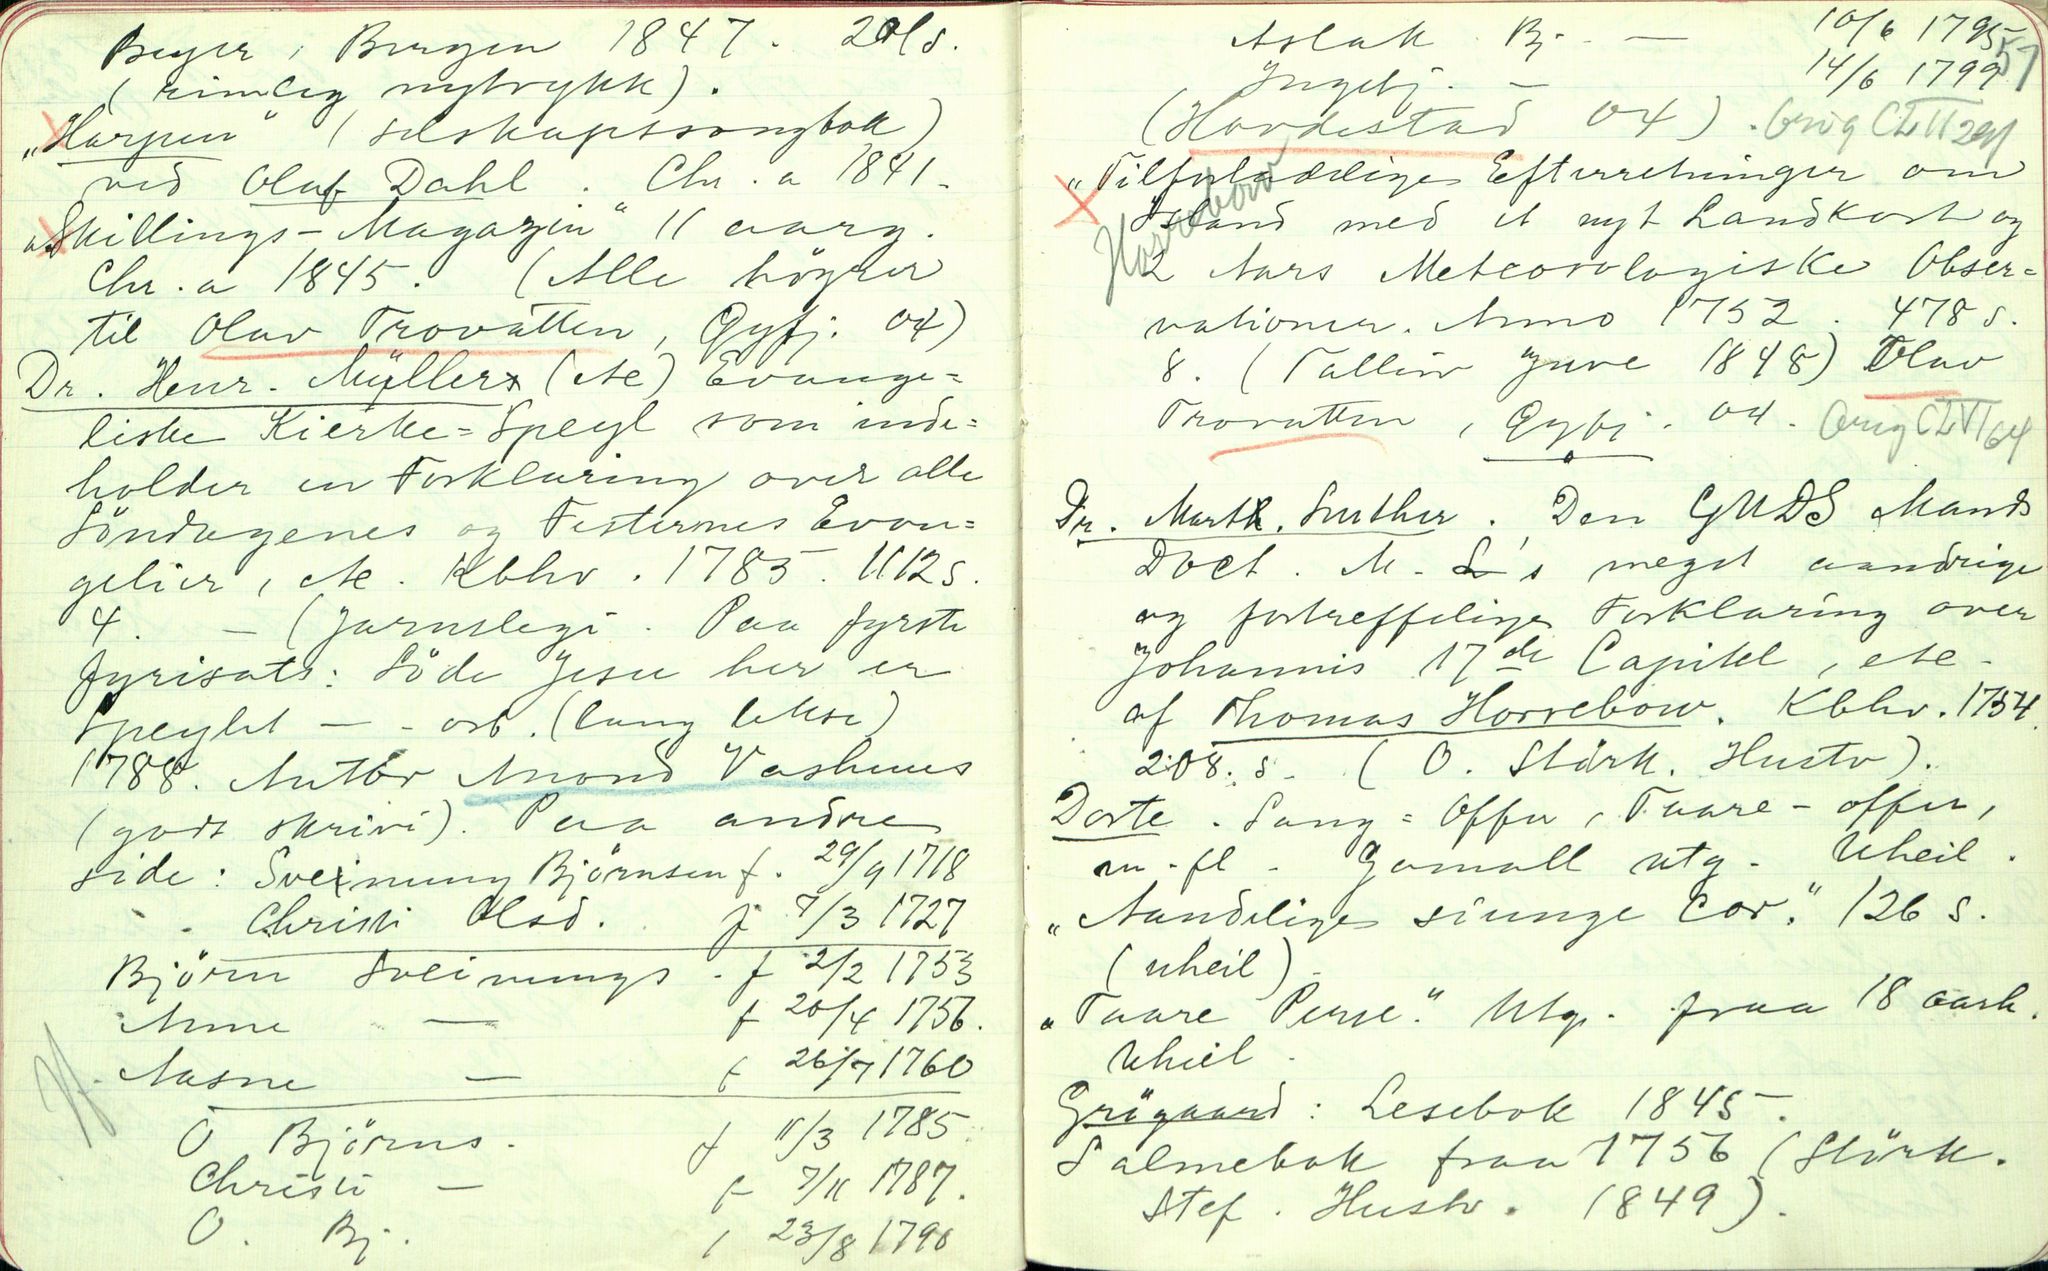 Beyer, Bergen 1847. 201 s.
(rimleg nytrykk).
„Harpen“ (selskapssongbok)
ved Olaf Dahl. Chr.a 1841.
„Skillings-Magazin“ 11 aarg.
Chr.a 1845. (Alle höyrer
til Olav Trovatten, Qyfj. 04)
Dr. Henr. Müllers (etc) Evange=
liske Kierke=Speyl som inde=
holder en Forklaring over alle
Söndagenes og Festernes Evan=
gelier, etc. Kbhv. 1785. 1112 s.
4. — (Jarnslegi. Paa fyrste
fyrisats: Söde Jesu her er
Speylet — - osb. (lang lekse)
1788. Autor Anond Vashuus
(godt skrivi). Paa andre
side: Sveinung Björnsen f. 29/9 1718
- Christi Olsd. f 7/3 1727
Björn Sveinungs. f 2/2 1753
Anne — f 20/4 1756.
Aasne — f 26/7 1760
O Björns. f 11/3 1785
Christi — f 7/11 1787.
O. Bj. f 23/8 1790
Aslak Bj. — 10/6 1795
57
Ingebj. — 14/6 1799
(Hovdestad 04). Orig CLII
„Tilforladelige Efterretninger om
Island med et nyt Landkort og
Horrebow
2 Aars Meteorologiske Obser=
vationer. Anno 1752. 478 s.
8. (Talleiv Juve 1848) Olav
Trovatten, Qyfj. 04. Orig CLVI 64
Dr. Mart. Luther. Den GUDS Mands
Doct. M. L's meget aandrige
og fortreffelige Forklaring over
Johannis 17de Capitel, etc.
af Thomas Horrebow. Kbhv. 1754.
208. s. (O. Störk. Hustv).
Dorte. Sang=Offer, Taare-offer,
m.fl. Gamall utg. Uheil.
„Aandelige siunge Cor.“ 126 s.
(uheil).
„Taare Perse.“ Utg. fraa 18 aarh.
Uheil.
Grögaard: Lesebok 1845.
Salmebok fraa 1756 (Störk.
Stef. Hustv. 1849).